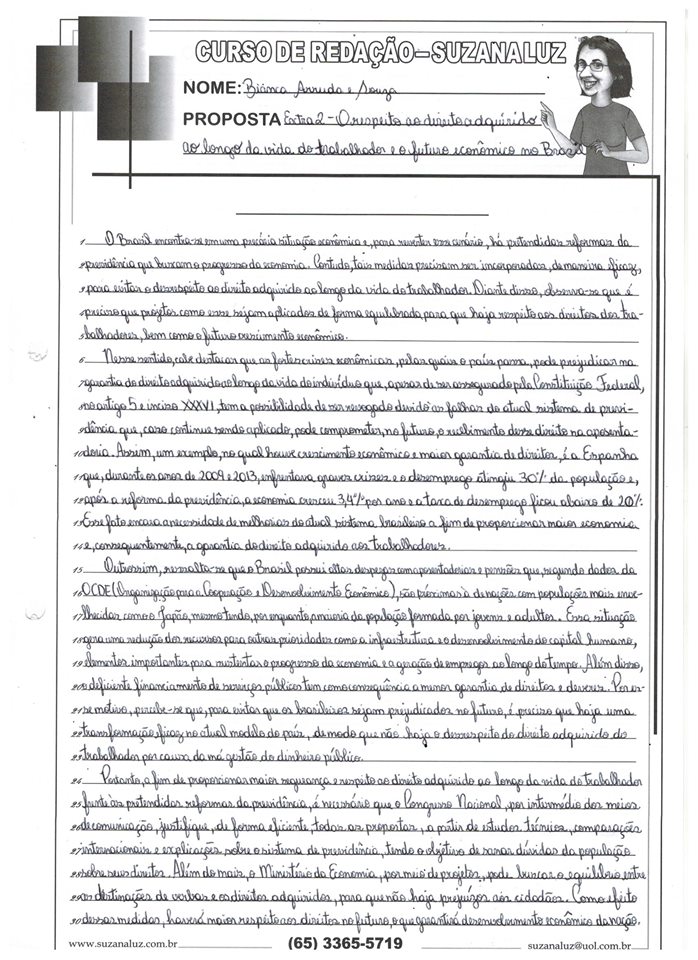 CURSO DE REDAÇÃO–SUZANA LUZ
NOME: Biánca Arruda e Souza
PROPOSTA Extra 2 - O respeito ao direito adquirido
ao longo da vida do trabalhador e o futuro econômico no Brasil
1 O Brasil encontra-se em uma precária situação econômica e, para reverter esse cenário, há pretendidas reformas da
2 previdência que buscam o progresso da economia. Contudo, tais medidas precisam ser incorporadas, de maneira eficaz,
3 para evitar o desrespeito ao direito adquirido ao longo da vida do trabalhador. Diante disso, observa-se que é
4 preciso que projetos como esse sejam aplicados de forma equilibrada para que haja respeito aos direitos dos tra-
5 balhadores, bem como o futuro crescimento econômico.
6 Nesse sentido, cabe destacar que as fortes crises econômicas, pelas quais o país passa, pode prejudicar na
7 garantia do direito adquirido ao longo da vida do indivíduo que, apesar de ser assegurado pela Constituição Federal,
8 no artigo 5 e inciso XXXVI, tem a possibilidade de ser revogado devido às falhas do atual sistema de previ-
9 dência que, caso continue sendo aplicado, pode comprometer, no futuro, o recebimento desse direito na aposenta-
10 doria. Assim, um exemplo, no qual houve crescimento econômico e maior garantia de direitos, é a Espanha
11 que, durante os anos de 2009 e 2013, enfrentava graves crises e o desemprego atingiu 30% da população e,
12 após a reforma da previdência, a economia cresceu 3,4% por ano e a taxa de desemprego ficou abaixo de 20%.
13 Esse fato encara a necessidade de melhorias do atual sistema brasileiro a fim de proporcionar maior economia
14 e, consequentemente, a garantia do direito adquirido aos trabalhadores.
15 Outrossim, ressalta-se que o Brasil possui altas despesas com aposentadorias e pensões que, segundo dados da
16 OCDE (Organização para a Cooperação e Desenvolvimento Econômico), são próximas a de nações com populações mais enve-
17 lhecidas como o Japão, mesmo tendo, por enquanto, a maioria da população formada por jovens e adultos. Essa situação
18 gera uma redução dos recursos para outras prioridades como a infraestrutura e o desenvolvimento do capital humano,
19 elementos importantes para sustentar o progresso da economia e a geração de empregos ao longo do tempo. Além disso,
20 o deficiente financiamento de serviços públicos tem como consequência a menor garantia de direitos e deveres. Por es-
21 se motivo, percebe-se que, para evitar que os brasileiros sejam prejudicados no futuro, é preciso que haja uma
22 transformação eficaz no atual modelo do país, de modo que não haja o desrespeito do direito adquirido do
23 trabalhador por causa da má gestão do dinheiro público.
24 Portanto, a fim de proporcionar maior segurança e respeito ao direito adquirido ao longo da vida do trabalhador
25 frente às pretendidas reformas da previdência, é necessário que o Congresso Nacional, por intermédio dos meios
26 de comunicação, justifique, de forma eficiente, todas as propostas, a partir de estudos técnicos, comparações
27 internacionais e explicações sobre o sistema de previdência, tendo o objetivo de sanar dúvidas da população
28 sobre seus direitos. Além do mais, o Ministério da Economia, por meio de projetos, pode buscar o equilíbrio entre
29 as destinações de verbas e os direitos adquiridos, para que não haja prejuízos aos cidadãos. Como efeito
30 dessas medidas, haverá maior respeito aos direitos no futuro, o que garantirá desenvolvimento econômico da nação.
www.suzanaluz.com.br (65) 3365-5719 suzanaluz@uol.com.br